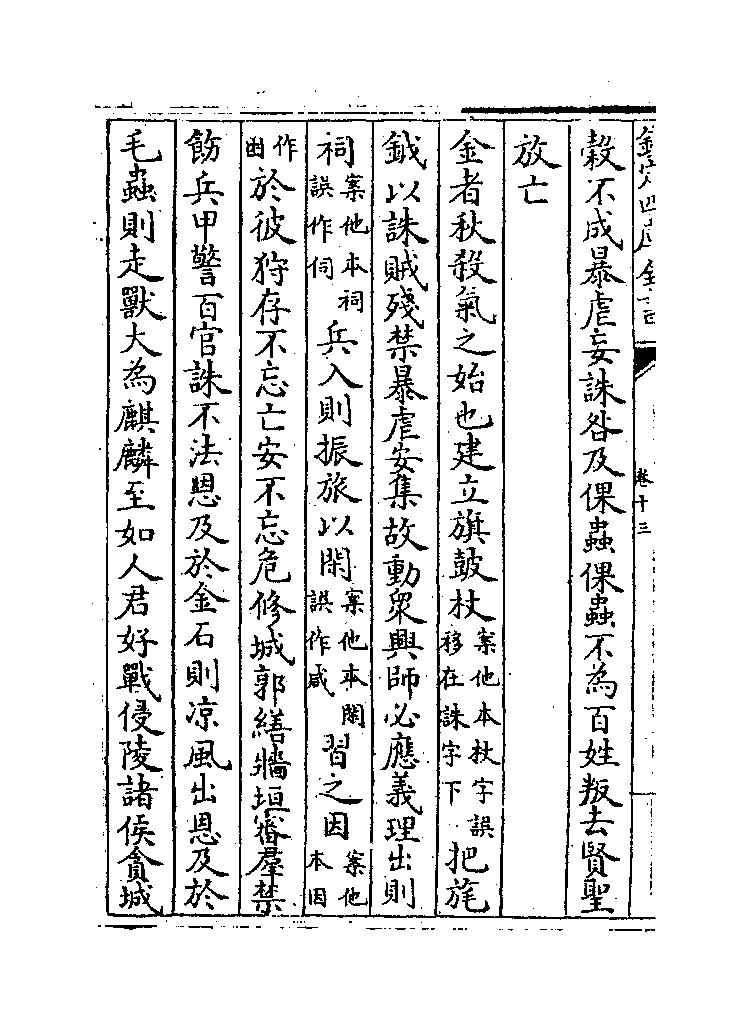 欽定四庫全書
卷十三
穀不成暴虐妄誅咎及倮蟲倮蟲不為百姓叛去賢聖
放亡
金者秋殺氣之始也建立旗鼓杖案他本杖字誤移在誅字下把旄
鉞以誅賊殘禁暴虐安集故動衆興師必應義理出則
祠案他本祠誤作伺兵入則振旅以閑案他本閑誤作咸習之因案他本因
作凼於彼狩存不忘亡安不忘危修城郭繕牆垣審羣禁
飭兵甲警百官誅不法恩及於金石則凉風出恩及於
毛蟲則走獸大為麒麟至如人君好戰侵陵諸侯貪城